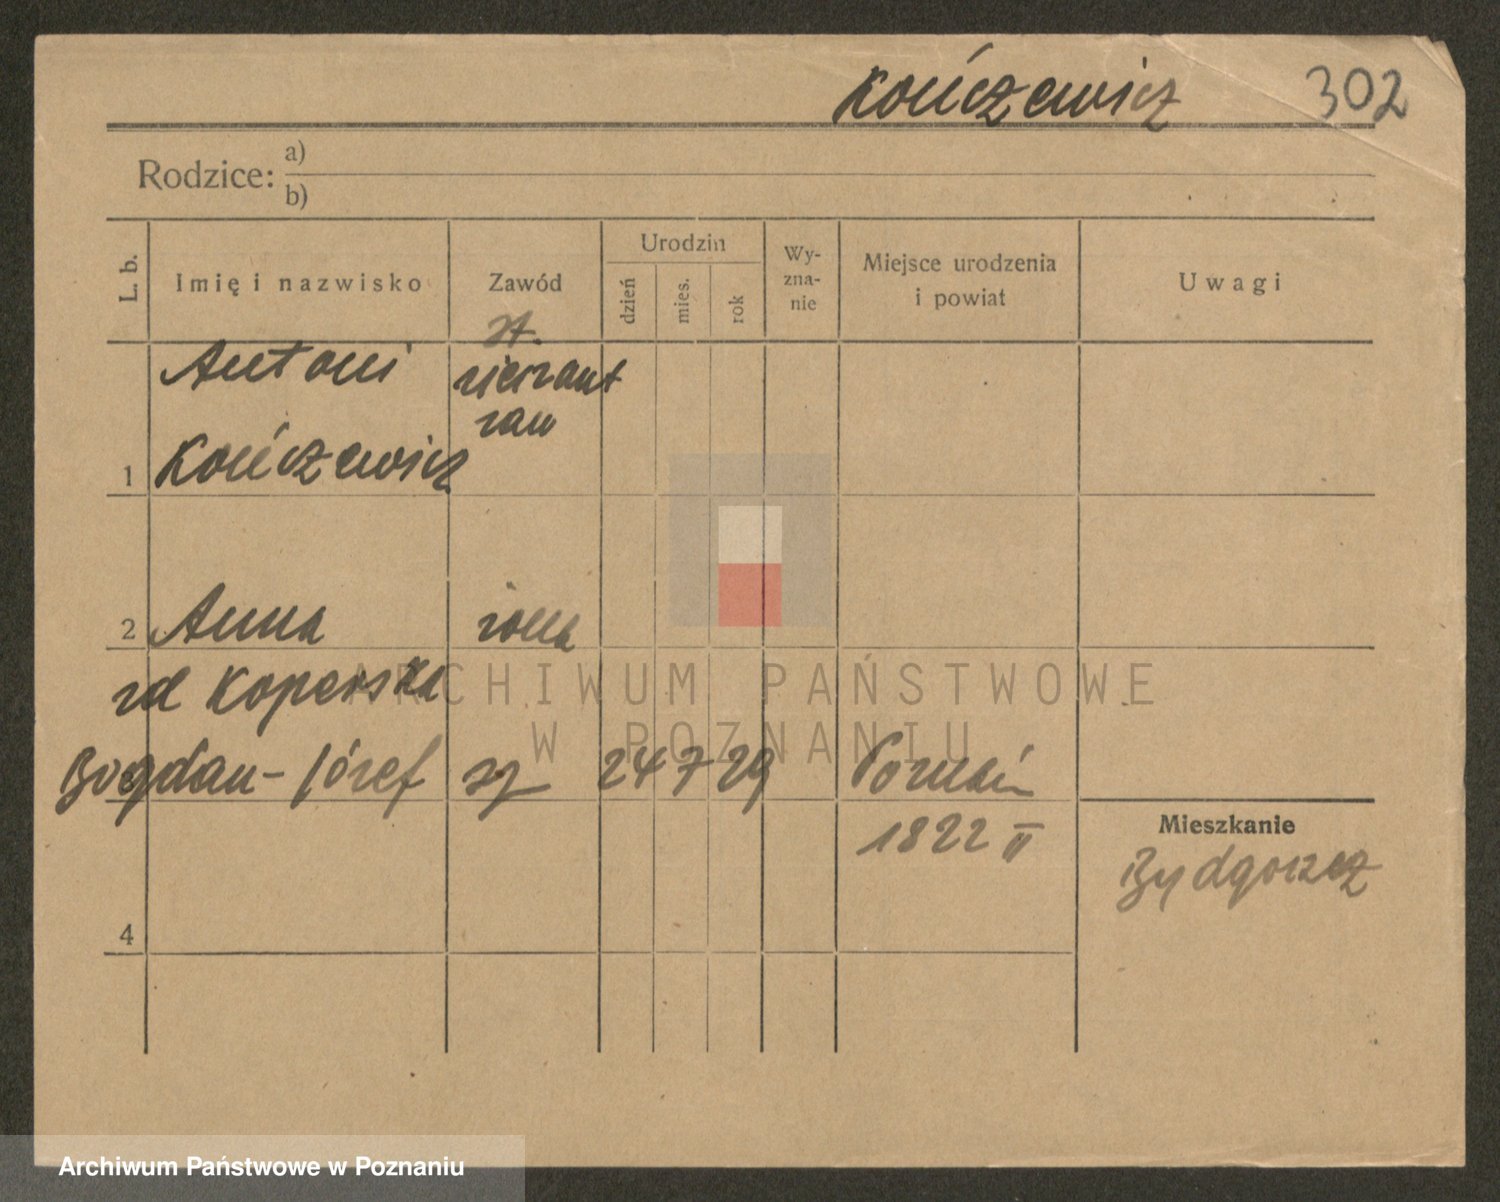 Kończewicz 302
Rodzice: a)
b)
L. b. Imię i nazwisko Zawód Urodzin dzień mies. rok Wy-zna-nie Miejsce urodzenia i powiat Uwagi
st.
Antoni sierżant
zaw
1 Kończewicz
2 Anna żona
zd Koperska
ARCHIWUM PAŃSTWOWE
W POZNANIU
Bogdan-Józef sy 24 7 29 Poznań
1822 II
Mieszkanie
Bydgoszcz
4
Archiwum Państwowe w Poznaniu